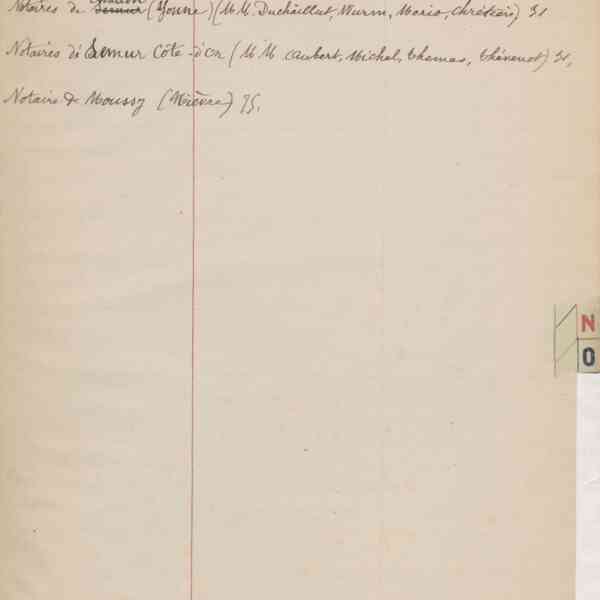 Notaires de Semur (Yonne) (M.M. Duchaillut, Wurm, Mario, Chrétien) 31
Notaires de Semur Côte-d'Or (M.M. Aubert, Michel, Thomas, Thévenot) 31,
Notaire de Moussy (Nièvre) 75.
N
O